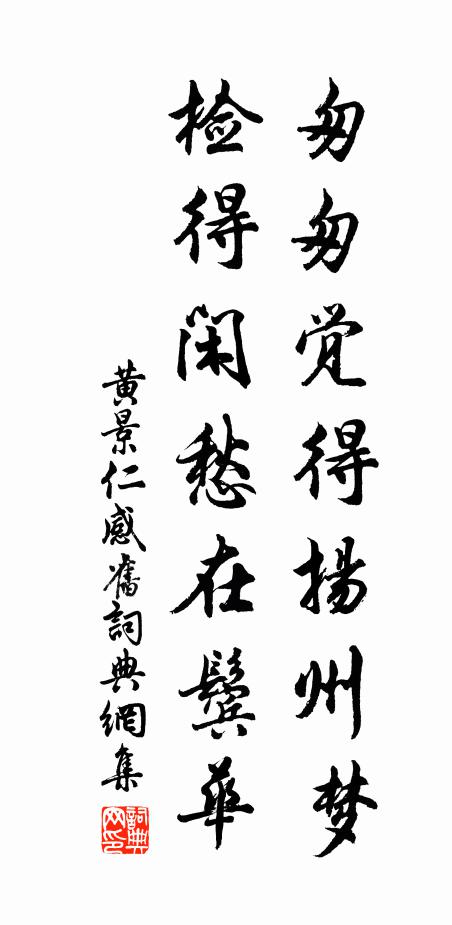 匆匆觉得扬州梦
检得闲愁在鬓华
黄景仁感舊詞典網集
詞典网印